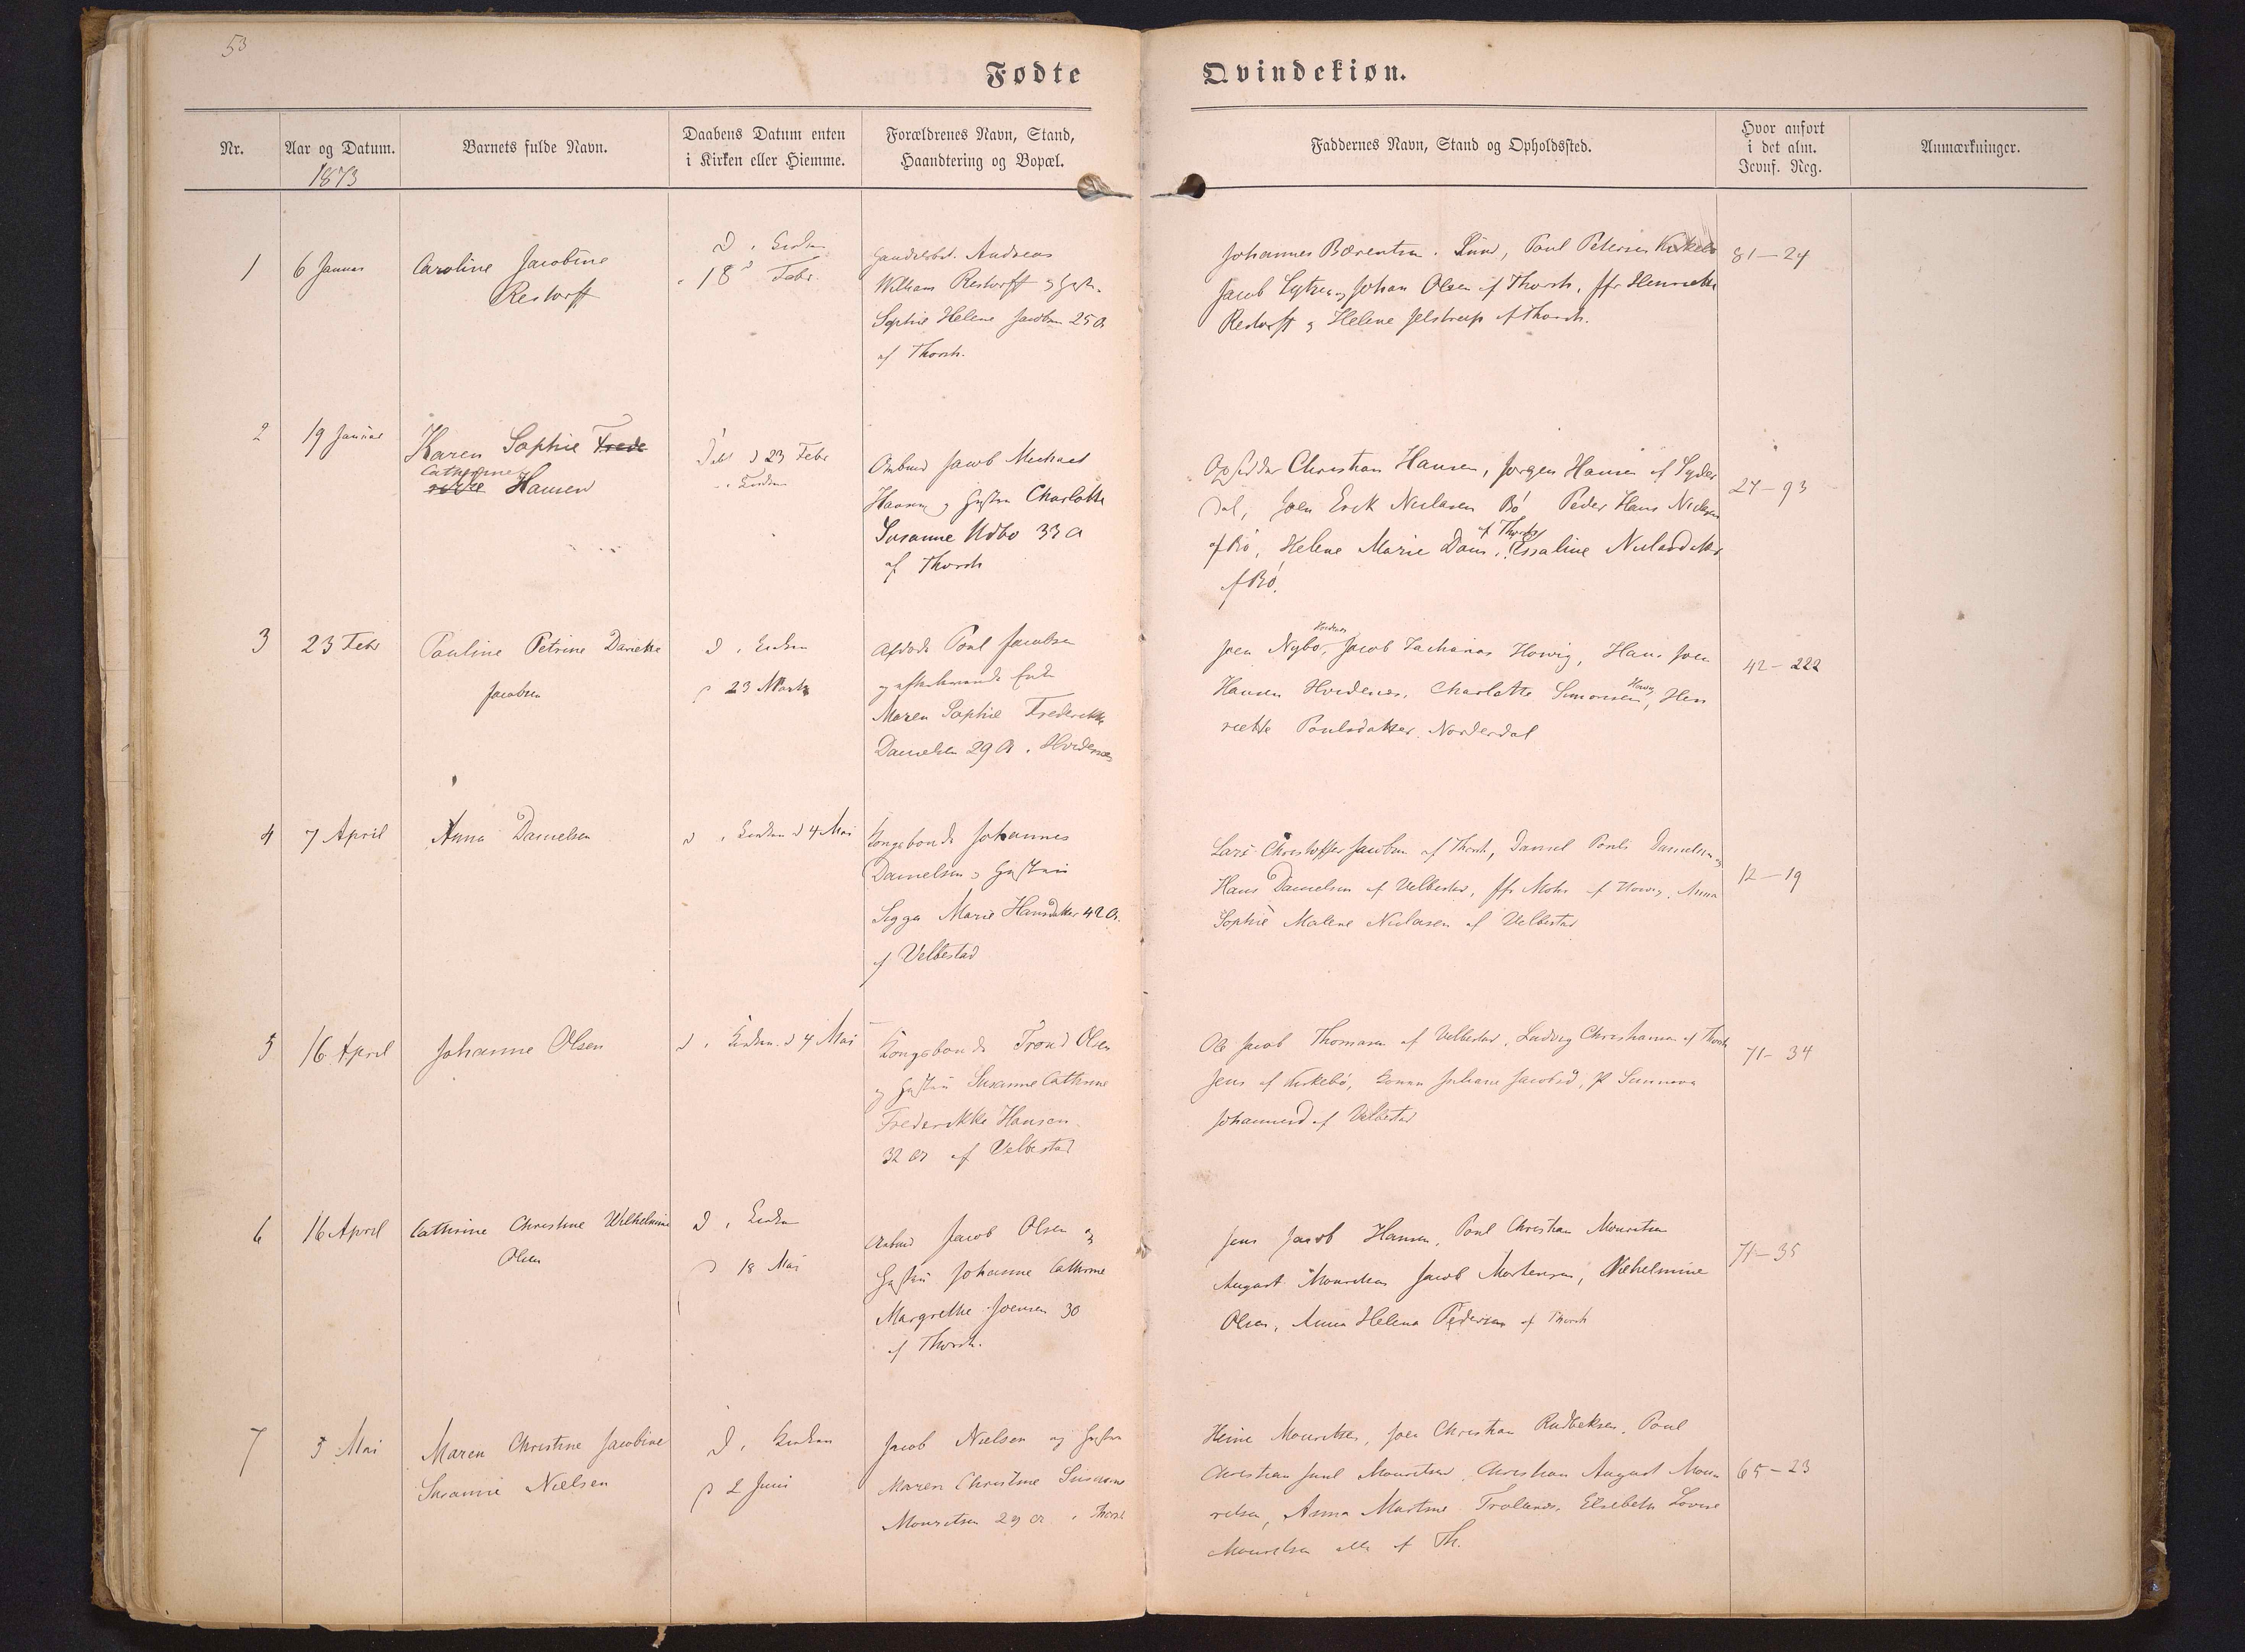 53
Fødte
Qvindekiøn.
Nr.
Aar og Datum.
1873
Barnets fulde Navn.
Daabens Datum enten
i Kirken eller Hiemme.
Forældrenes Navn, Stand,
Haandtering og Bopæl.
Faddernes Navn, Stand og Opholdssted.
Hvor anført
i det alm.
Jevnf. Reg.
Anmærkninger.
1
6 Januar
Caroline Jacobine
Restorff
D. i Kirken
18 Febr.
Andreas
William Restorff og
Sophie Helene Jacobsen 25 A
af Thorsh.
Johannes Bærentsen Sund, Poul Petersen Kirkebø
Jacob Lützen og Johan Olsen af Thorsh. Henriette
Restorff og Helene Jelstrup af Thorsh.
81-24
2
19 Januar
Karen Sophie Frede
Cathrine
rikke Hansen
Døbt d 23 Febr
i Kirken
Jacob Michael
Hansen og Hustru Charlotte
Susanne Udbo 33 A
af Thorsh
Opsidder Christian Hansen, Jørgen Hansen af Syder
dal, Joen Erik Nielasen Bø Peder Hans Nielsen
af Thorsh
af Bø, Helene Marie Dam, Rosaline Nielasdatter
af Bø.
24-93
3
23 Febr
Pauline Petrine Daniele
Jacobsen
D. i Kirken
d 23 Marts
Afdøde Poul Jacobsen
og efterlevende Enke
Maren Sophie Frederikke
Danielsen 29 A. Hvidenæs
Hvidenæs
Joen Nybo, Jacob Zacharias Howig, Hans Joen
Howig
Hansen Hvidenes, Charlotte Simonsen, Hen
riette Poulsdatter, Norderdal
42-222
4
7 April
Anna Danielsen
D. i Kirken d 4 Mai
Kongsbonde Johannes
Danielsen og Hustru
Sigga Marie Hansdatter 42 A.
af Velbestad
Lars Christoffer Jacobsen af Thorsh, Daniel Pouli Danielsen og
Hans Danielsen af Velbestad, Mohr af Howig, Anna
Sophie Malene Nielasen af Velbestad
12-19
5
16 April
Johanne Olsen
D. i Kirken d 4 Mai
Kongsbonde Trond Olsen
og Hustru Susanne Cathrine
Frederikke Hansen
32 A af Velbestad
Ole Jacob Thomasen af Velbestad, Ludvig Christiansen af Thorsh
Jens af Kirkebø, Konen Juliane Jacobsd, P Sunneva
Johannesd af Velbestad
71-34
6
16 April
Cathrine Christine Wilhelmine
Olsen
D. i Kirken
d 18 Mai
Jacob Olsen og
Hustru Johanne Cathrine
Margrethe Joensen 30
af Thorsh.
Jens Jacob Hansen, Poul Christian Mouritsen
August Mouritsen Jacob Mortensen, Wilhelmine
Olsen, Anna Helena Pedersen af Thorsh
71-35
7
5 Mai
Maren Christine Jacobine
Susanne Nielsen
D. i Kirken
d 2 Juni
Jacob Nielsen og Hustru
Maren Christine Susanne
Mouritsen 29 A. i Thorsh
Heine Mouritsen, Joen Christian Rudbeksen, Poul
Christian Juul Mouritsen, Christian August Mou
ritsen, Anna Martine Trolland, Elsebeth Lovise
Mouritsen alle af Th.
65-23